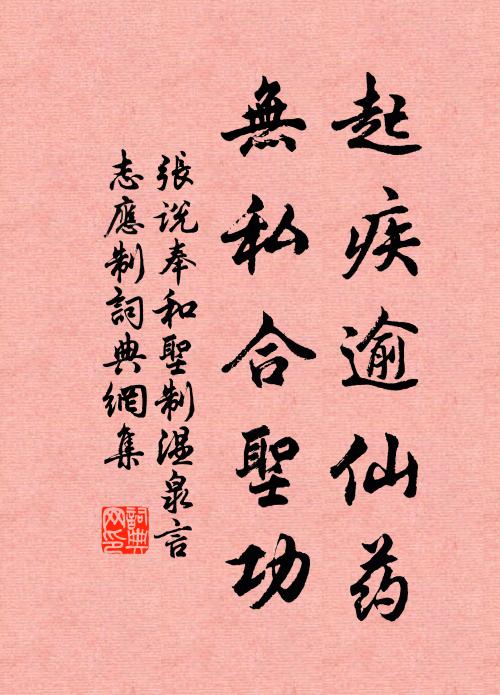 起疾逾仙药
無私合聖功
張说奉和聖制温泉言
志應制詞典網集
詞典
网印